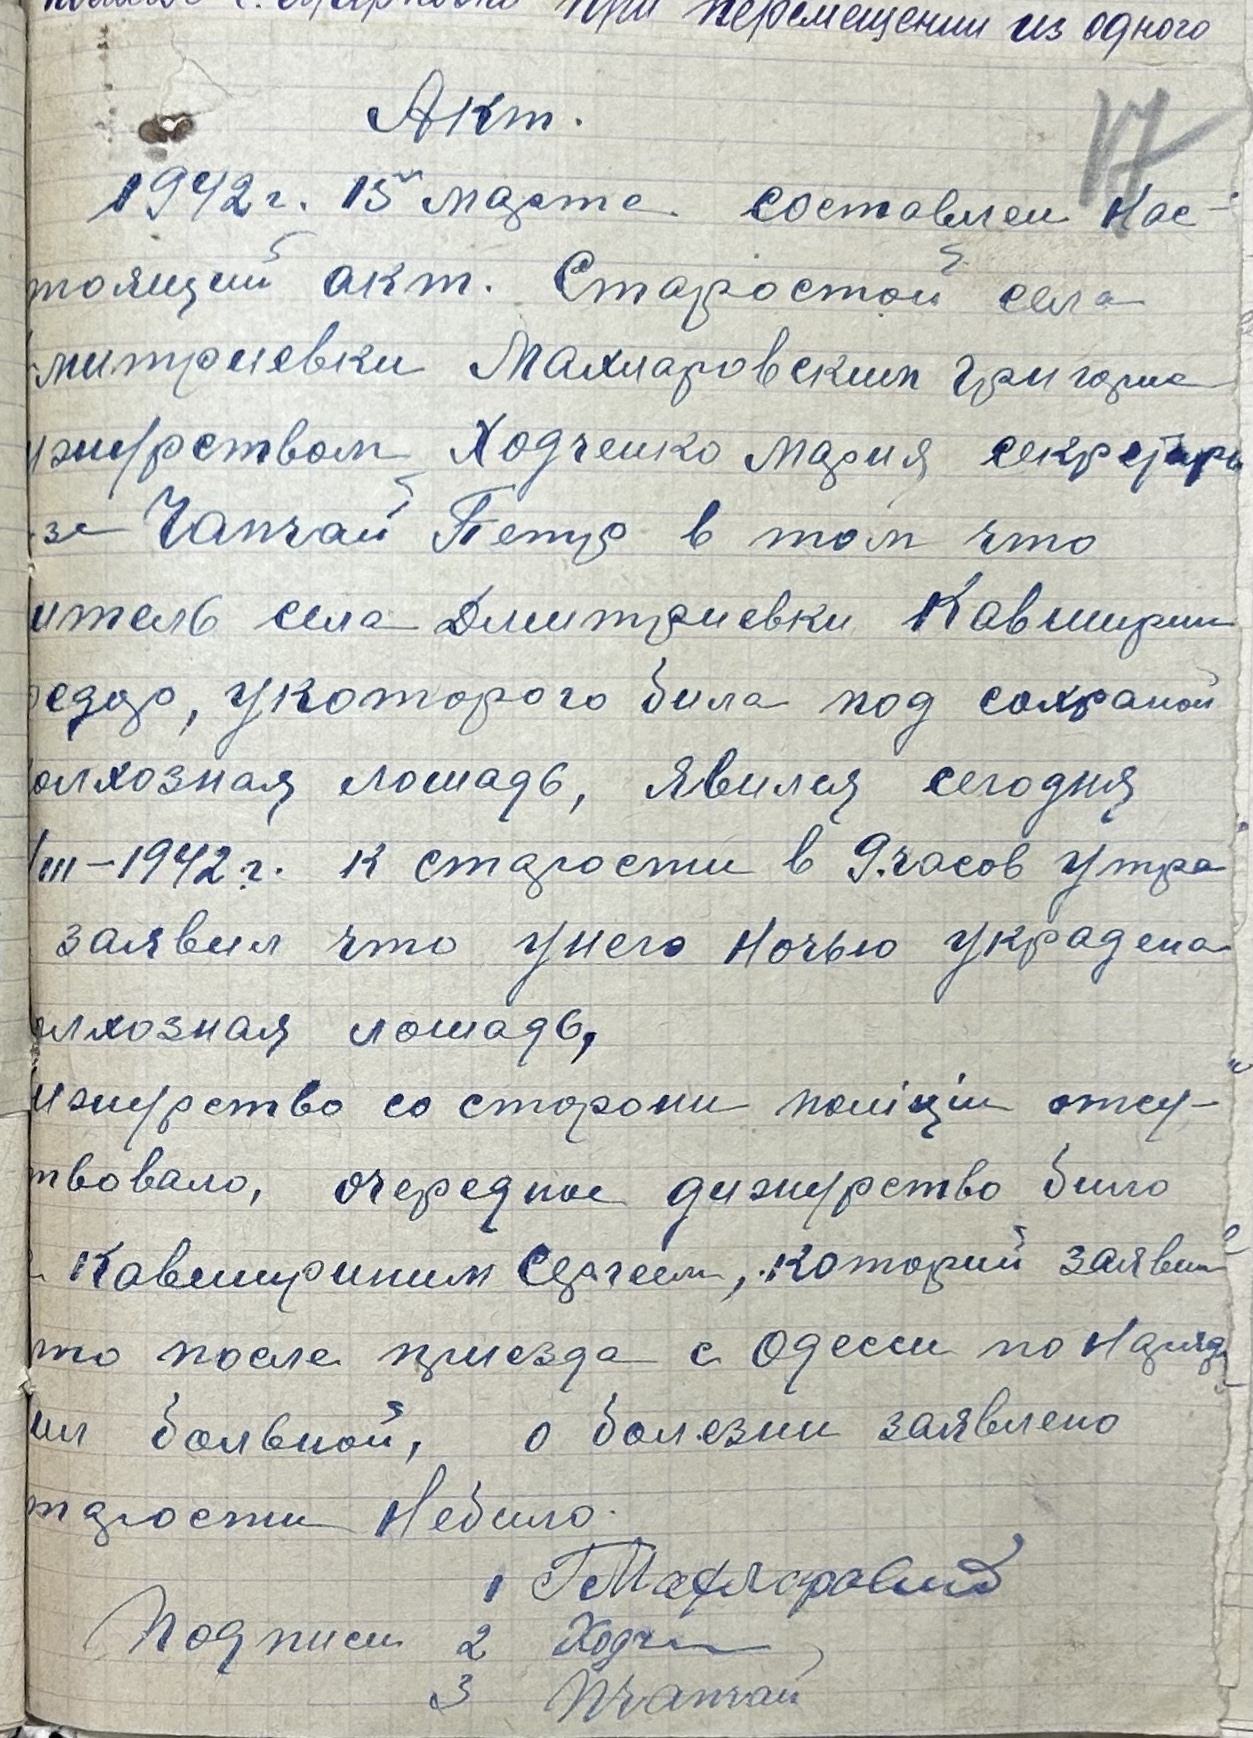 при перемещении из одного
17
Акт.
1942 г. 15го марта составлен нас-
тоящий акт. Старостой села
митриевки Махларовским Григорие
ижурством Ходченко Мария секретарь
за Чапчай Петр в том что
итель села Дмитриевки Кавширин
едор, укоторого била под сохраной
олхозная лошадь, явился сегодня
/III-1942 г. к старости в 9 часов утра
заявил что унего ночью украдена
олхозная лошадь,
ижурство со сторони поліціи отсу-
твовало, очередное дижурство било
Кавширином Сергеем, который заявил
то после приезда с Одесси по наряд
ил больной, о болезни заявлено
тарости небило.
1 ГМахларовский
Подписи 2 Ходч
3 ПЧапчай